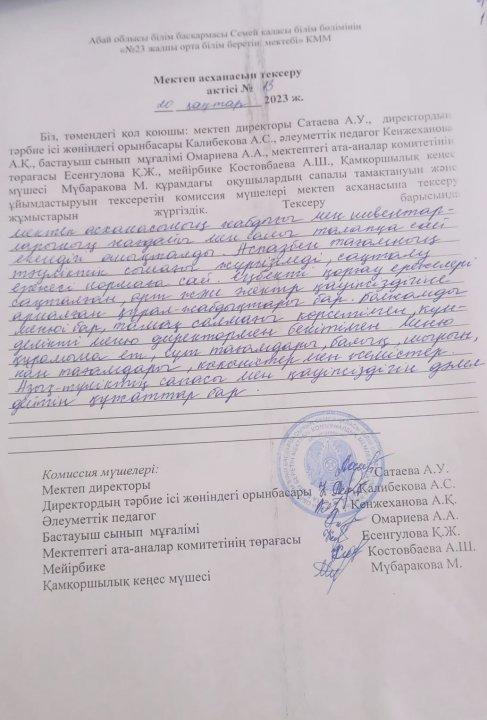 Абай облысы білім басқармасы Семей қаласы білім бөлімінің
«№23 жалпы орта білім беретін мектебі» КММ
Мектеп асханасын тексеру
актісі № 13
10 қаңтар 2023 ж.
Біз, төмендегі қол қоюшы: мектеп директоры Сатаева А.У., директордың
тәрбие ісі жөніндегі орынбасары Калибекова А.С., әлеуметтік педагог Кенжеханова
А.Қ., бастауыш сынып мұғалімі Омариева А.А., мектептегі ата-аналар комитетінің
төрағасы Есенгулова Қ.Ж., мейірбике Костовбаева А.Ш., Қамқоршылық кеңес
мүшесі Мұбаракова М. құрамдағы оқушылардың сапалы тамақтануын және
ұйымдастыруын тексеретін комиссия мүшелері мектеп асханасына тексеру
жұмыстарын жүргіздік. Тексеру барысында
мектеп асханасының жабдығы мен инвентар-
ларының жағдайы мен талапқа сай
екендігі анықталды. Аспазбен тағамның
тәуліктік сынағы жүргізіледі, сақталу
ережесі нормаға сай. Еңбекті қорғау ережелері
сақталған, өрт және электр қауіпсіздігіне
арналған құрал-жабдықтары бар. Болжамды
менюі бар, тамақ салмағы көрсетілген, күн-
делікті меню директормен бекітілген. Меню
құрамына ет, сүт тағамдары, балық, шырын,
нан тағамдары, көкөністер мен жемістер.
Азық-түліктің сапасы мен қауіпсіздігін дәлел
дейтін құжаттар бар.
Комиссия мүшелері:
Мектеп директоры Сатаева А.У.
Директордың тәрбие ісі жөніндегі орынбасары Калибекова А.С.
Әлеуметтік педагог Кенжеханова А.Қ.
Бастауыш сынып мұғалімі Омариева А.А.
Мектептегі ата-аналар комитетінің төрағасы Есенгулова Қ.Ж.
Мейірбике Костовбаева А.Ш.
Қамқоршылық кеңес мүшесі Мұбаракова М.